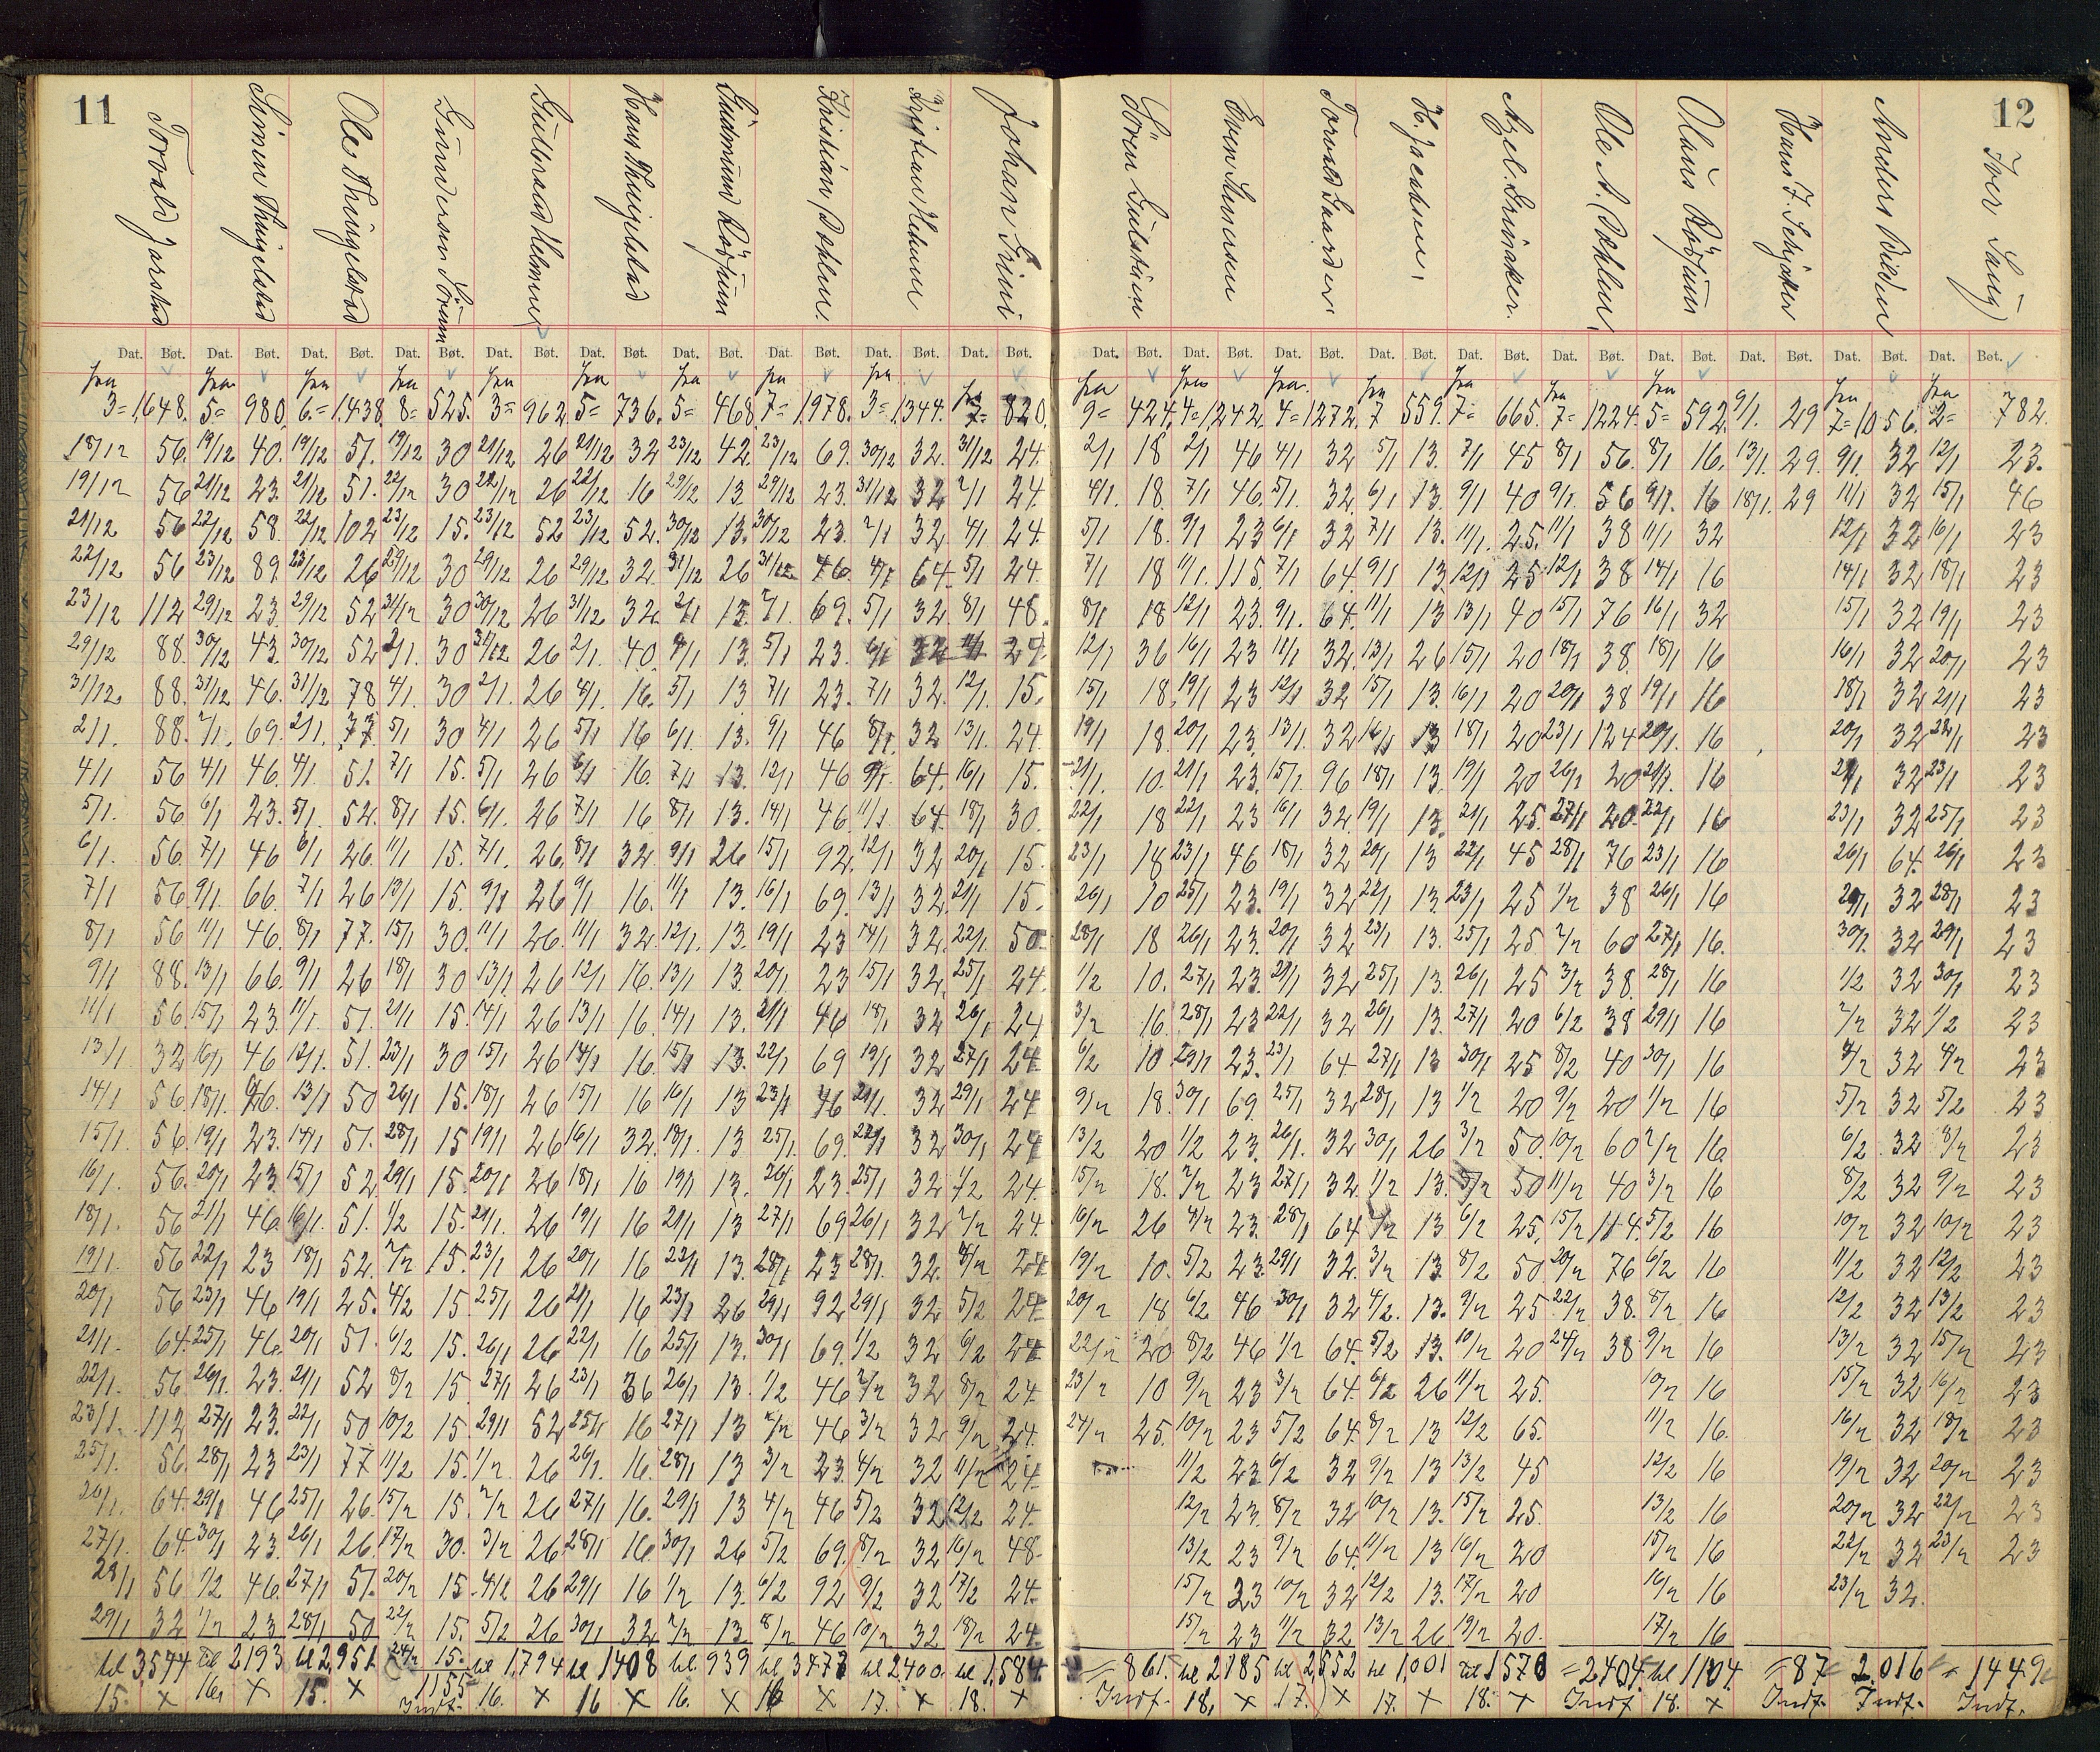 11
Torvald Jarstad
Simen Thingelstad
Ole Thingelstad
Gundersen Sörum
Gulbrand Helmen
Hans Thingelstad
Gudmund Röisum
Kristian Dæhlen.
Kristian Helmen
Johan Grini
Dat. Bøt. Dat. Bøt. Dat. Bøt. Dat. Bøt. Dat. Bøt. Dat. Bøt. Dat. Bøt. Dat. Bøt. Dat. Bøt. Dat. Bøt.
fra fra fra fra fra fra fra fra fra fra
3= 1,648. 5= 980. 6.= 1.438. 8= 525. 3= 962 5= 736. 5= 468. 7= 1,978. 3= 1,344. 7= 820.
18/12 56. 19/12 40. 19/12 51. 19/12 30 21/12 26 21/12 32 23/12 42. 23/12 69. 30/12 32. 31/12 24.
19/12 56 21/12 23. 21/12 51. 22/12 30 22/12 26 22/12 16 29/12 13 29/12 23. 31/12 32 2/1 24.
21/12 56 22/12 58. 22/12 102 23/12 15. 23/12 52 23/12 52. 30/12 13. 30/12 23. 2/1 32 4/1 24.
22/12 56 23/12 89. 23/12 26 29/12 30 29/12 26 29/12 32. 31/12 26 31/12 46. 4/1 64. 5/1 24.
23/12 112 29/12 23. 29/12 52 31/12 30 30/12 26 31/12 32. 2/1 13. 2/1. 69. 5/1 32 8/1 48.
29/12 88. 30/12 43. 30/12 52 2/1. 30 31/12 26 2/1. 40. 4/1 13. 5/1 23. 6/1 32 11/1 29
31/12. 88. 31/12 46. 31/12 78 4/1. 30 2/1. 26 4/1. 16. 5/1 13 7/1 23. 7/1 32. 12/1. 15.
2/1. 88. 2/1. 69. 2/1. 77. 5/1 30 4/1 26 5/1 16 6/1. 13. 9/1 46 8/1. 32 13/1. 24.
4/1 56 4/1 46. 4/1. 51. 7/1 15. 5/1. 26 6/1 16. 7/1 13. 12/1 46 9/1. 64. 16/1 15.
5/1. 56 6/1 23. 5/1. 52. 8/1 15. 6/1. 26 7/1 16 8/1 13. 14/1 46. 11/1 64. 18/1 30.
6/1. 56. 7/1 46 6/1 26. 11/1 15. 7/1. 26. 8/1 32. 9/1 26 15/1 92. 12/1 32 20/1 15.
7/1 56. 9/1. 66. 7/1 26 13/1 15. 9/1 26 9/1 16. 11/1 13. 16/1 69. 13/1 32. 21/1 15.
8/1 56 11/1 46. 8/1 77. 15/1 30. 11/1 26. 11/1 32. 12/1. 13. 19/1 23 14/1 32. 22/1. 50.
9/1 88. 13/1 66. 9/1 26 18/1 30 13/1. 26 12/1 16. 13/1 13. 20/1. 23 15/1 32. 25/1 24.
11/1 56. 15/1 23. 11/1. 51. 21/1 15. 14/1 26 13/1 16. 14/1 13. 21/1 46 18/1 32 26/1 24
13/1 32 16/1 46 12/1. 51. 23/1 30 15/1 26 14/1 16. 15/1 13. 22/1 69 19/1 32 27/1 24
14/1 56. 18/1. 46. 13/1 50 26/1 15. 18/1 26 15/1 16 16/1 13 23/1 46 21/1. 32 29/1 24
15/1. 56. 19/1 23. 14/1 51. 28/1 15 19/1 26 16/1 32. 18/1. 13 25/1. 69. 22/1 32 30/1 24
16/1. 56. 20/1 23. 15/1 52. 29/1 15. 20/1 26 18/1 16 19/1 13. 26/1 23. 25/1 32 1/2 24.
18/1. 56 21/1 46. 16/1. 51. 1/2 15. 21/1. 26 19/1 16 21/1 13 27/1 69 26/1 32 2/2 24.
19/1. 56 22/1 23 18/1 52. 2/2 15. 23/1 26 20/1 16 22/1 13. 28/1 23 28/1. 32. 4/2 24
20/1 56 23/1 46 19/1 25. 4/2 15. 25/1 26 21/1 16 23/1 26 29/1 92 29/1 32 5/2 24
21/1. 64. 25/1 46. 20/1 51. 6/2 15. 26/1 26 22/1 16 25/1 13. 30/1 69. 1/2 32 6/2 24
22/1. 56 26/1. 23. 21/1 52 8/2 15. 27/1 26 23/1 36 26/1 13. 1/2 46 2/2 32 8/2 24.
23/1. 112 27/1 23. 22/1. 50 10/2 15. 29/1 52 25/1 16 27/1 13 2/2 46 3/2 32 9/2 24.
25/1. 56. 28/1 23 23/1 77 11/2 15. 1/2. 26 26/1. 16. 28/1 13 3/2 23. 4/2 32 11/2 24.
26/1. 64. 29/1 46 25/1 26. 15/2 15. 2/2 26 27/1 16. 29/1 13 4/2 46 5/2 32 12/2 24.
27/1. 64. 30/1 23. 26/1 26. 17/2 30. 3/2 26. 28/1 16. 30/1 26 5/2 69. 8/2 32 16/2 48.
28/1 56 1/2 46. 27/1 51. 20/2 15. 4/2 26 29/1 16 1/2 13. 6/2 92 9/2 32 17/2 24.
29/1 32 2/2 23 28/1 50 22/2 15. 5/2 26 30/1 32 2/2 13 8/2 46 10/2 32 18/2 24.
til 3,574 til 2193 til 2,951 24/2 15. til 1,794 til 1408 til 939 til 3477 til 2400. til 1,584.
1155
15. x 16. x 15. x Indf. 16. x 16 x 16. x 16 x 17. x 18. x
12
Sören Gulstuen
Even Simensen
Torvald Gaarder
H. Jacobsen.
Axel Grinaker.
Ole A. Dæhlen.
Olaus Röisum
Hans J. Schjölker
Anders Bilden
Iver Laug
Dat. Bøt. Dat. Bøt. Dat. Bøt. Dat. Bøt. Dat. Bøt. Dat. Bøt. Dat. Bøt. Dat. Bøt. Dat. Bøt. Dat. Bøt.
fra fra fra fra fra fra fra fra fra
9= 424. 4= 1,242. 4= 1272. 7 559. 7= 665. 7= 1224. 5= 592. 9/1. 29 7= 1056. 2= 782.
2/1 18 2/1 46 4/1 32 5/1 13. 7/1 45 8/1 56. 8/1 16. 13/1. 29. 9/1. 32 12/1 23.
4/1. 18. 7/1 46. 5/1. 32. 6/1 13. 9/1 40 9/1 56 9/1. 16 18/1. 29 11/1 32 15/1 46
5/1 18. 9/1 23 6/1 32 7/1 13. 11/1. 25. 11/1 38 11/1 32 12/1 32 16/1 23
7/1 18 11/1. 115. 7/1 64. 9/1 13. 12/1 25 12/1 38 14/1 16 14/1 32 18/1 23
8/1 18 12/1 23. 9/1. 64. 11/1 13 13/1 40 15/1 76 16/1 32 15/1 32 19/1 23
12/1 36 16/1 23 11/1 32. 13/1 26 15/1 20 18/1 38. 18/1 16 16/1 32 20/1 23
15/1 18. 19/1 23 12/1 32 15/1 13. 16/1 20 20/1 38 19/1 16 18/1 32 21/1 23
19/1 18. 20/1 23. 13/1. 32 16/1 13 18/1 20 23/1 124 20/1. 16 20/1 32 22/1 23
21/1. 10. 21/1 23. 15/1. 96 18/1 13. 19/1 20 26/1 20 21/1. 16 21/1 32 23/1 23
22/1 18 22/1 23 16/1 32. 19/1 13. 21/1 25. 27/1 20. 22/1 16 23/1 32 25/1 23
23/1 18 23/1 46 18/1 32 20/1 13 22/1 45 28/1 76 23/1 16 26/1 64. 26/1 23
26/1 10 25/1 23. 19/1 32 22/1 13. 23/1 25 1/2 38 26/1 16 29/1 32 28/1 23
28/1 18 26/1 23. 20/1 32 23/1 13. 25/1 25 2/2 60 27/1 16. 30/1. 32 29/1 23
1/2 10. 27/1 23. 21/1 32 25/1. 13. 26/1 25 3/2 38. 28/1 16 1/2 32 30/1 23
3/2 16. 28/1 23 22/1 32 26/1 13. 27/1 20 6/2 38 29/1 16 2/2 32 1/2 23
6/2 10 29/1 23. 23/1 64 27/1 13 30/1 25 8/2 40 30/1 16 4/2 32 4/2 23
9/2 18. 30/1 69. 25/1 32 28/1 13 1/2 20 9/2 20 1/2 16 5/2 32 5/2 23
13/2 20 1/2 23. 26/1. 32 30/1 26 3/2 50. 10/2 60 2/2 16. 6/2 32 8/2 23
15/2 18. 2/2 23 27/1 32. 1/2 13. 5/2 50 11/2 40 3/2 16 8/2 32 9/2 23
16/2 26 4/2 23. 28/1 64 2/2 13 6/2 25. 15/2 114. 5/2 16 10/2 32 10/2 23
19/2 10. 5/2 23. 29/1 32. 3/2 13. 8/2 50. 20/2 76 6/2 16 11/2 32 12/2 23
20/2 18 6/2 46 30/1 32 4/2. 13. 9/2 25 22/2 38. 8/2 16 12/2 32 13/2 23
22/2 20 8/2 46 1/2 64. 5/2 13. 10/2 20 24/2 38 9/2 16 13/2 32 15/2 23
23/2 10 9/2 23 3/2 64. 6/2 26 11/2 25. 10/2 16 15/2 32 16/2 23
24/2 25. 10/2 23 5/2 64. 8/2 13 12/2 65. 11/2 16. 16/2 32 18/2 23
11/2 23 6/2 32 9/2 13 13/2 45 12/2 16 19/2 32 20/2 23
12/2 23. 8/2 32 10/2 13. 15/2 25. 13/2 16 20/2 32 22/2 23
13/2 23 9/2 64. 11/2 13 16/2 20 15/2 16 22/2 32 23/2 23
15/2 23 10/2 32 12/2 13. 17/2 20 16/2 16 23/2 32.
15/2 23 11/2 32 13/2 26 19/2 20. 17/2 16
= 861. til 2185 til 2,552 til 1,001 til 1570 = 2404. til 1104. = 87 2016 = 1449
Indf. 18. x 17. x 17. x 18. x Indf 18. x Indf. Indf. Indf.